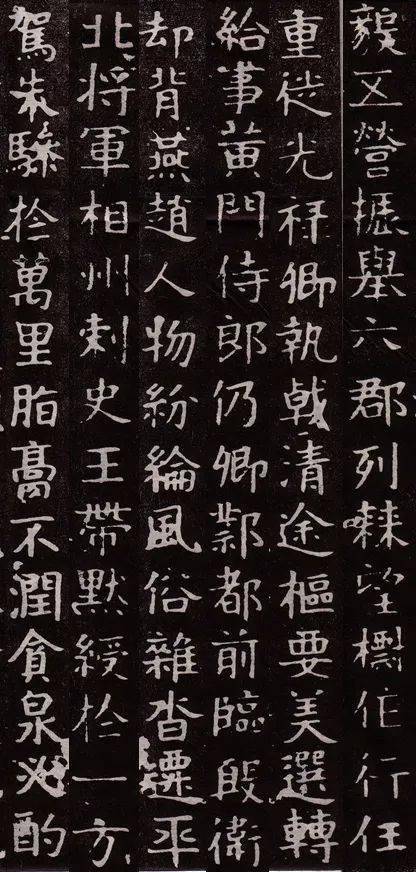 毅五營振舉六郡列棘望作行任
重徙光祿卿執戟清途樞要美選轉
給事黃門侍郎仍卿鄴都前臨殷衛
却背燕趙人物紛綸風俗雜沓遷平
北將軍相州刺史王帶默綬於一方
駕朱驂於萬里脂膏不潤貪泉必酌